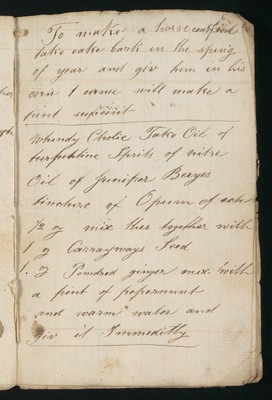 To make a horse
take oake bark in the sprig
of year and giv him in his
corn 1 ounce will make a
pint suficient
Whindy Cholic Take Oil of
turpentine Sprits of nitre
Oil of Juniper Beryes
tincture of Opeum of each
½ oz mix thes together with
1 oz Carrayways Seed
1 oz Powdred ginger mix with
a pint of pepermunt
and warm water and
giv it Immeditly